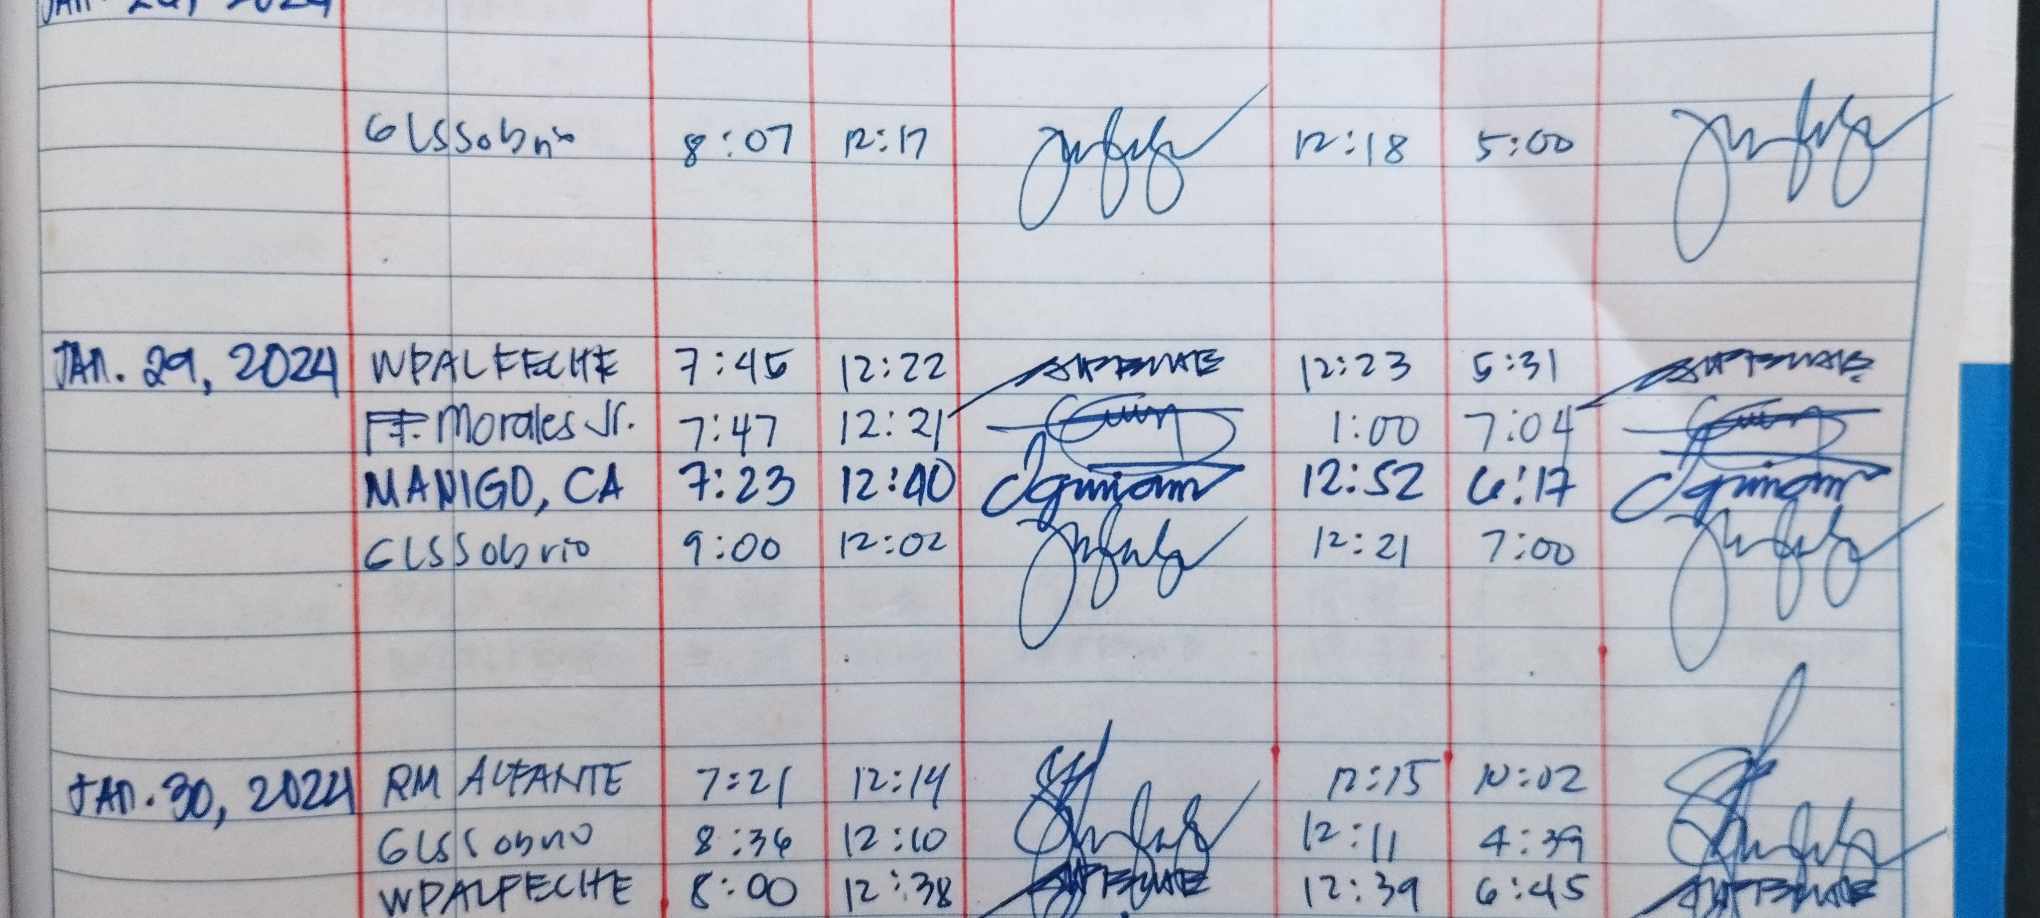 2024
GLSSobrio 8:07 12:17 12:18 5:00
JAN. 29, 2024 WPALFECHE 7:45 12:22 12:23 5:31
FF. Morales Jr. 7:47 12:21 1:00 7:04
MANIGO, CA 7:23 12:40 12:52 6:17
GLSSobrio 9:00 12:02 12:21 7:00
JAN. 30, 2024 RM ALFANTE 7:21 12:14 12:15 10:02
GLSSobrio 8:36 12:10 12:11 4:39
WPALFECHE 8:00 12:38 12:39 6:45